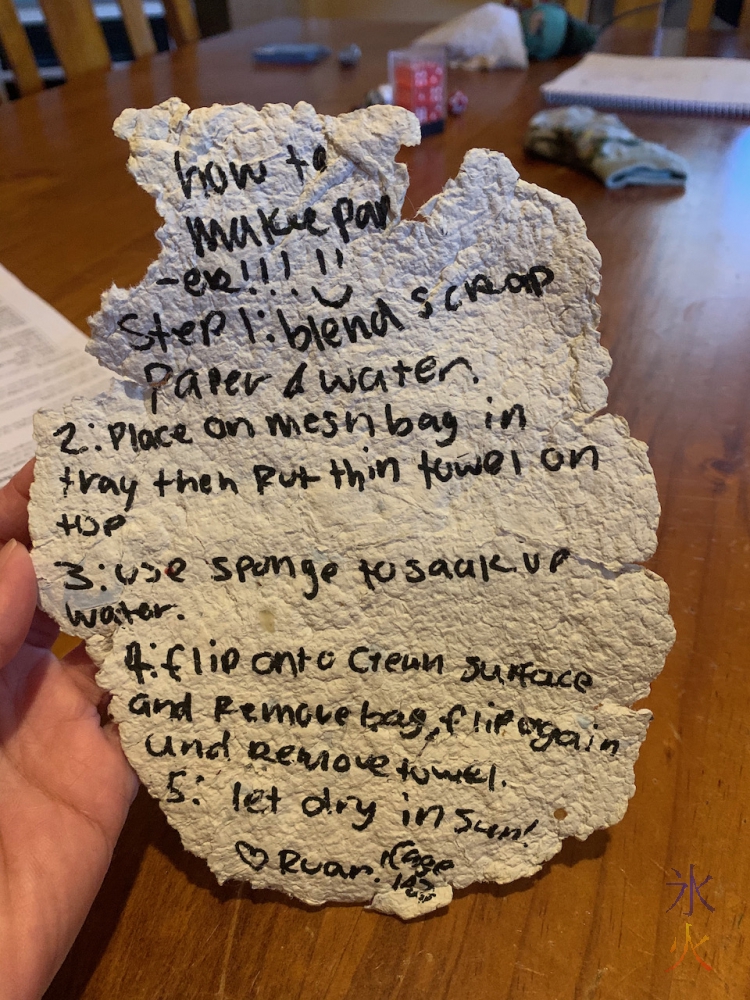 how to
make pap
-er!!! !!
Step 1: blend scrap
Paper & water.
2: Place on mesh bag in
tray then put thin towel on
top
3: use sponge to soak up
water.
4: flip onto clean surface
and Remove bag, flip again
and Remove towel.
5: let dry in sun!
♡ Ruar.
氷
火